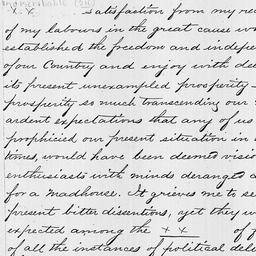 x.x. satisfaction from my re
of my labours in the great cause wo
established the freedom and indepe
of our Country and enjoy with dee
its present unexampled prosperity—
prosperity so much transcending our
ardent expectations that any of us
prophicied our present situation in
times, would have been deemed visio
enthusiasts with minds deranged a
for a madhouse. It grieves me to se
present bitter disentions, yet they w
expected among the x x of f
of all the instances of political delu